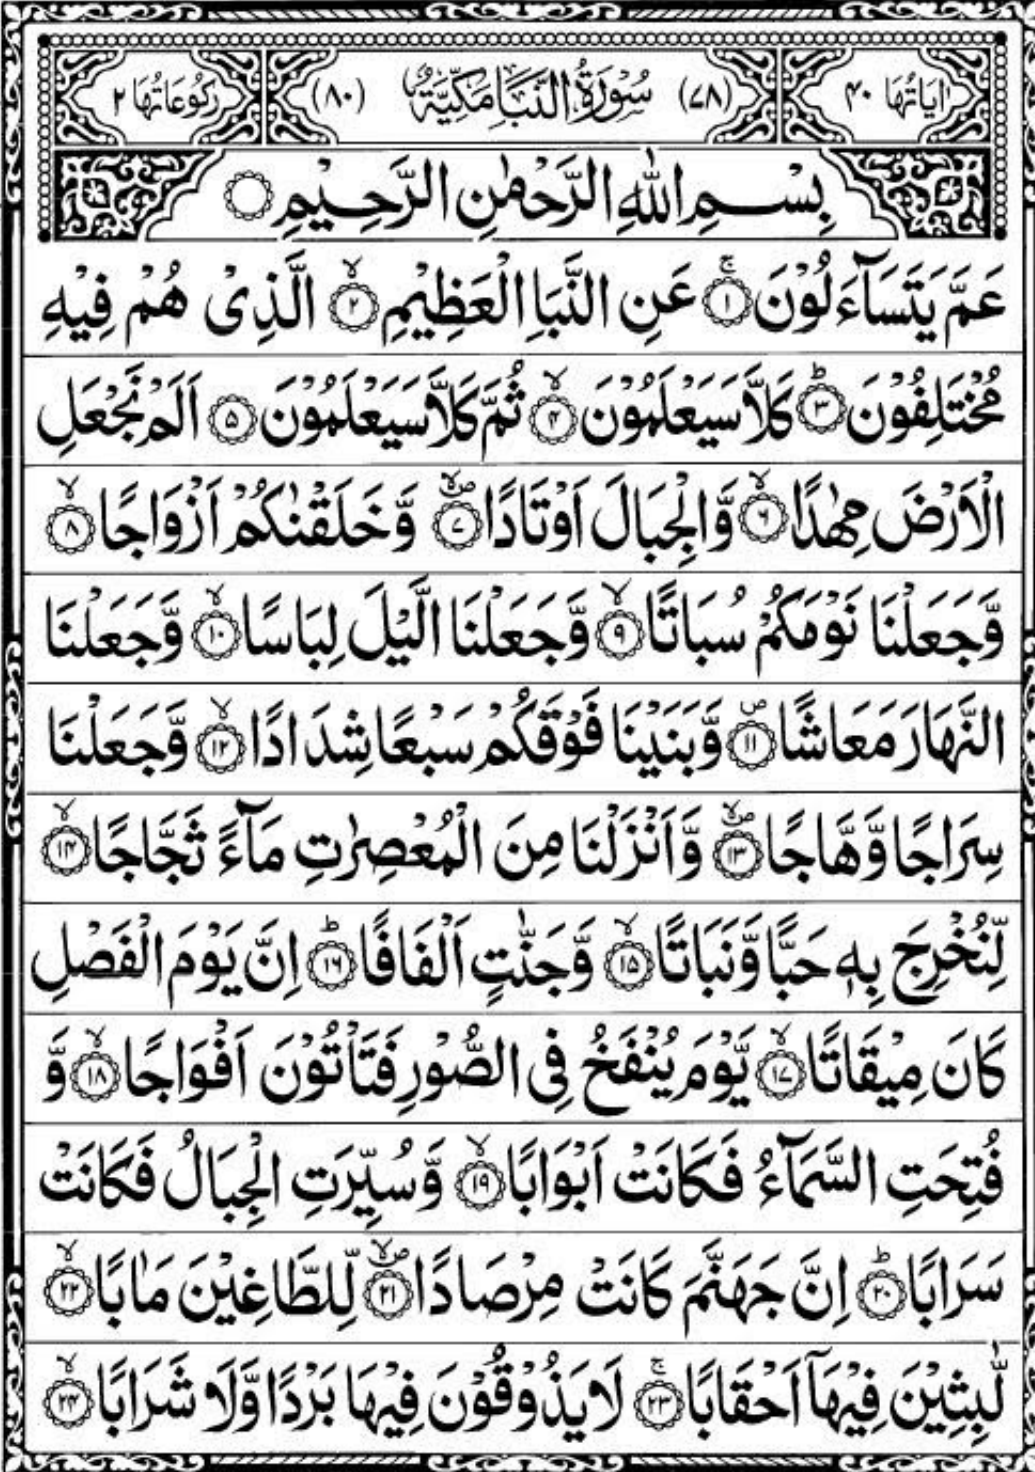 اٰیَاتُهَا ۴۰ (۷۸) سُوْرَةُ النَّبَاِ مَكِّیَّةٌ (۸۰) رُكُوْعَاتُهَا ۲
بِسْمِ اللّٰهِ الرَّحْمٰنِ الرَّحِیْمِ
عَمَّ یَتَسَآءَلُوْنَ ۚ‏﴿۱﴾ عَنِ النَّبَاِ الْعَظِیْمِ ۙ‏﴿۲﴾ الَّذِیْ هُمْ فِیْهِ
مُخْتَلِفُوْنَ ؕ‏﴿۳﴾ كَلَّا سَیَعْلَمُوْنَ ۙ‏﴿۴﴾ ثُمَّ كَلَّا سَیَعْلَمُوْنَ ﴿۵﴾ اَلَمْ نَجْعَلِ
الْاَرْضَ مِهٰدًا ۙ‏﴿۶﴾ وَّالْجِبَالَ اَوْتَادًا ۪ۙ‏﴿۷﴾ وَّخَلَقْنٰكُمْ اَزْوَاجًا ۙ‏﴿۸﴾
وَّجَعَلْنَا نَوْمَكُمْ سُبَاتًا ۙ‏﴿۹﴾ وَّجَعَلْنَا الَّیْلَ لِبَاسًا ۙ‏﴿۱۰﴾ وَّجَعَلْنَا
النَّهَارَ مَعَاشًا ۪‏﴿۱۱﴾ وَّبَنَیْنَا فَوْقَكُمْ سَبْعًا شِدَادًا ۙ‏﴿۱۲﴾ وَّجَعَلْنَا
سِرَاجًا وَّهَّاجًا ۪ۙ‏﴿۱۳﴾ وَّاَنْزَلْنَا مِنَ الْمُعْصِرٰتِ مَآءً ثَجَّاجًا ۙ‏﴿۱۴﴾
لِّنُخْرِجَ بِهٖ حَبًّا وَّنَبَاتًا ۙ‏﴿۱۵﴾ وَّجَنّٰتٍ اَلْفَافًا ؕ‏﴿۱۶﴾ اِنَّ یَوْمَ الْفَصْلِ
كَانَ مِیْقَاتًا ۙ‏﴿۱۷﴾ یَّوْمَ یُنْفَخُ فِی الصُّوْرِ فَتَاْتُوْنَ اَفْوَاجًا ۙ‏﴿۱۸﴾ وَّ
فُتِحَتِ السَّمَآءُ فَكَانَتْ اَبْوَابًا ۙ‏﴿۱۹﴾ وَّسُیِّرَتِ الْجِبَالُ فَكَانَتْ
سَرَابًا ؕ‏﴿۲۰﴾ اِنَّ جَهَنَّمَ كَانَتْ مِرْصَادًا ۪ۙ‏﴿۲۱﴾ لِّلطَّاغِیْنَ مَاٰبًا ۙ‏﴿۲۲﴾
لّٰبِثِیْنَ فِیْهَاۤ اَحْقَابًا ۚ‏﴿۲۳﴾ لَا یَذُوْقُوْنَ فِیْهَا بَرْدًا وَّلَا شَرَابًا ۙ‏﴿۲۴﴾